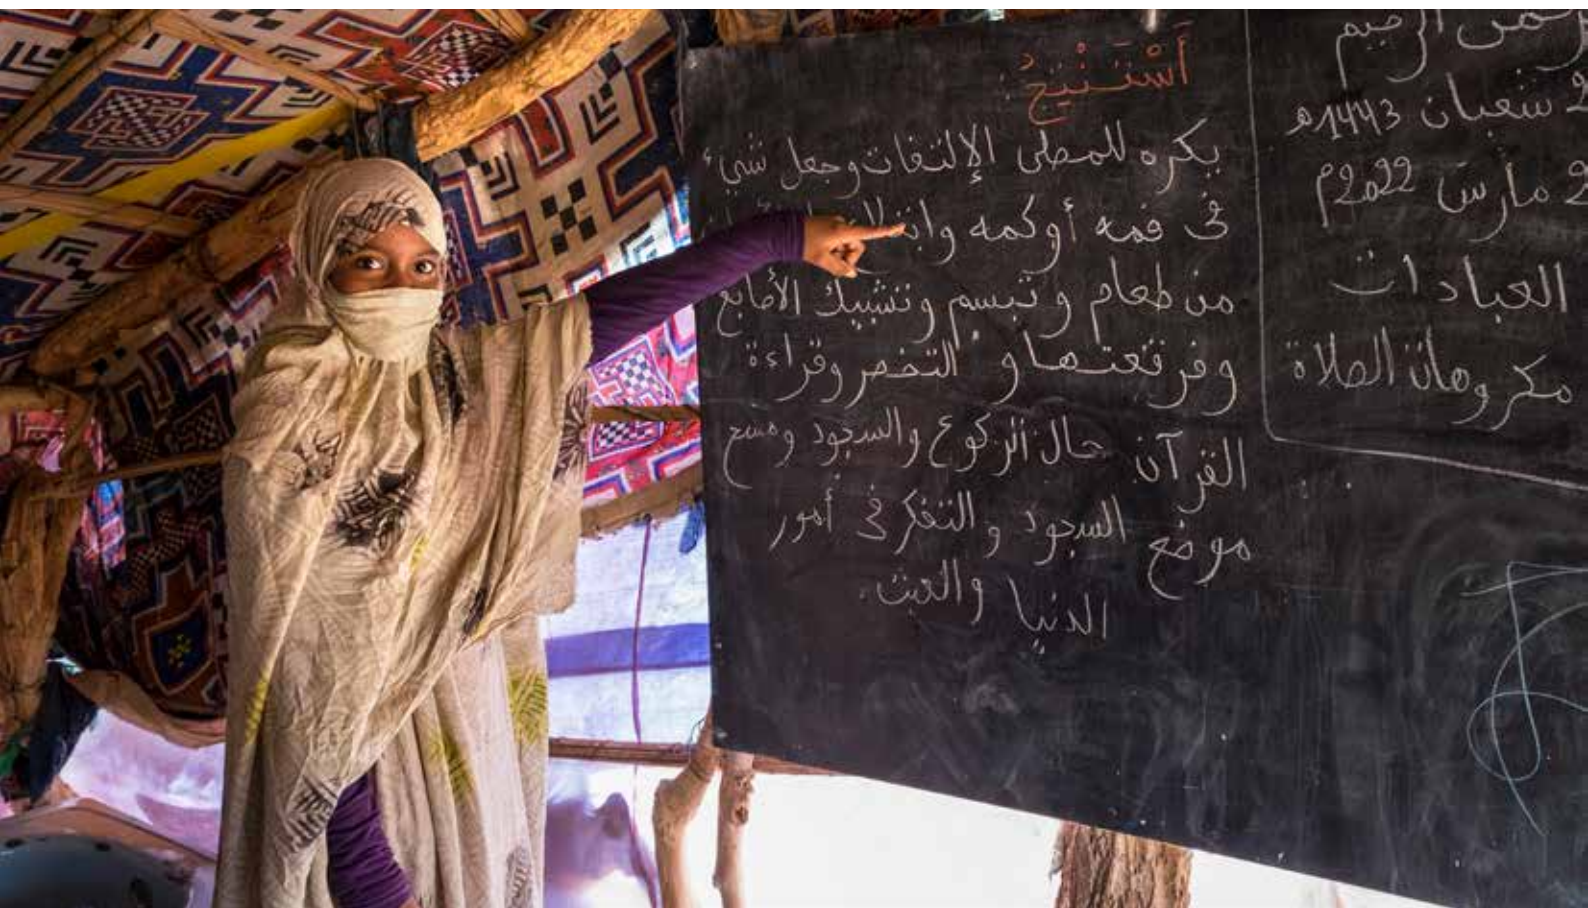 الرحيم
شعبان 1443ه
مارس 2022م
العبادات
مكروهات الصلاة
أَسْتَنْتِجُ:
يكره للمصلي الإلتفات وجعل شيء
في فمه أو كمه
من طعام وتبسم وتشبيك الأصابع
وفرقعتها و التخصر وقراءة
القرآن حال الركوع والسجود ومسح
موضع السجود والتفكر في أمور
الدنيا والعبث.